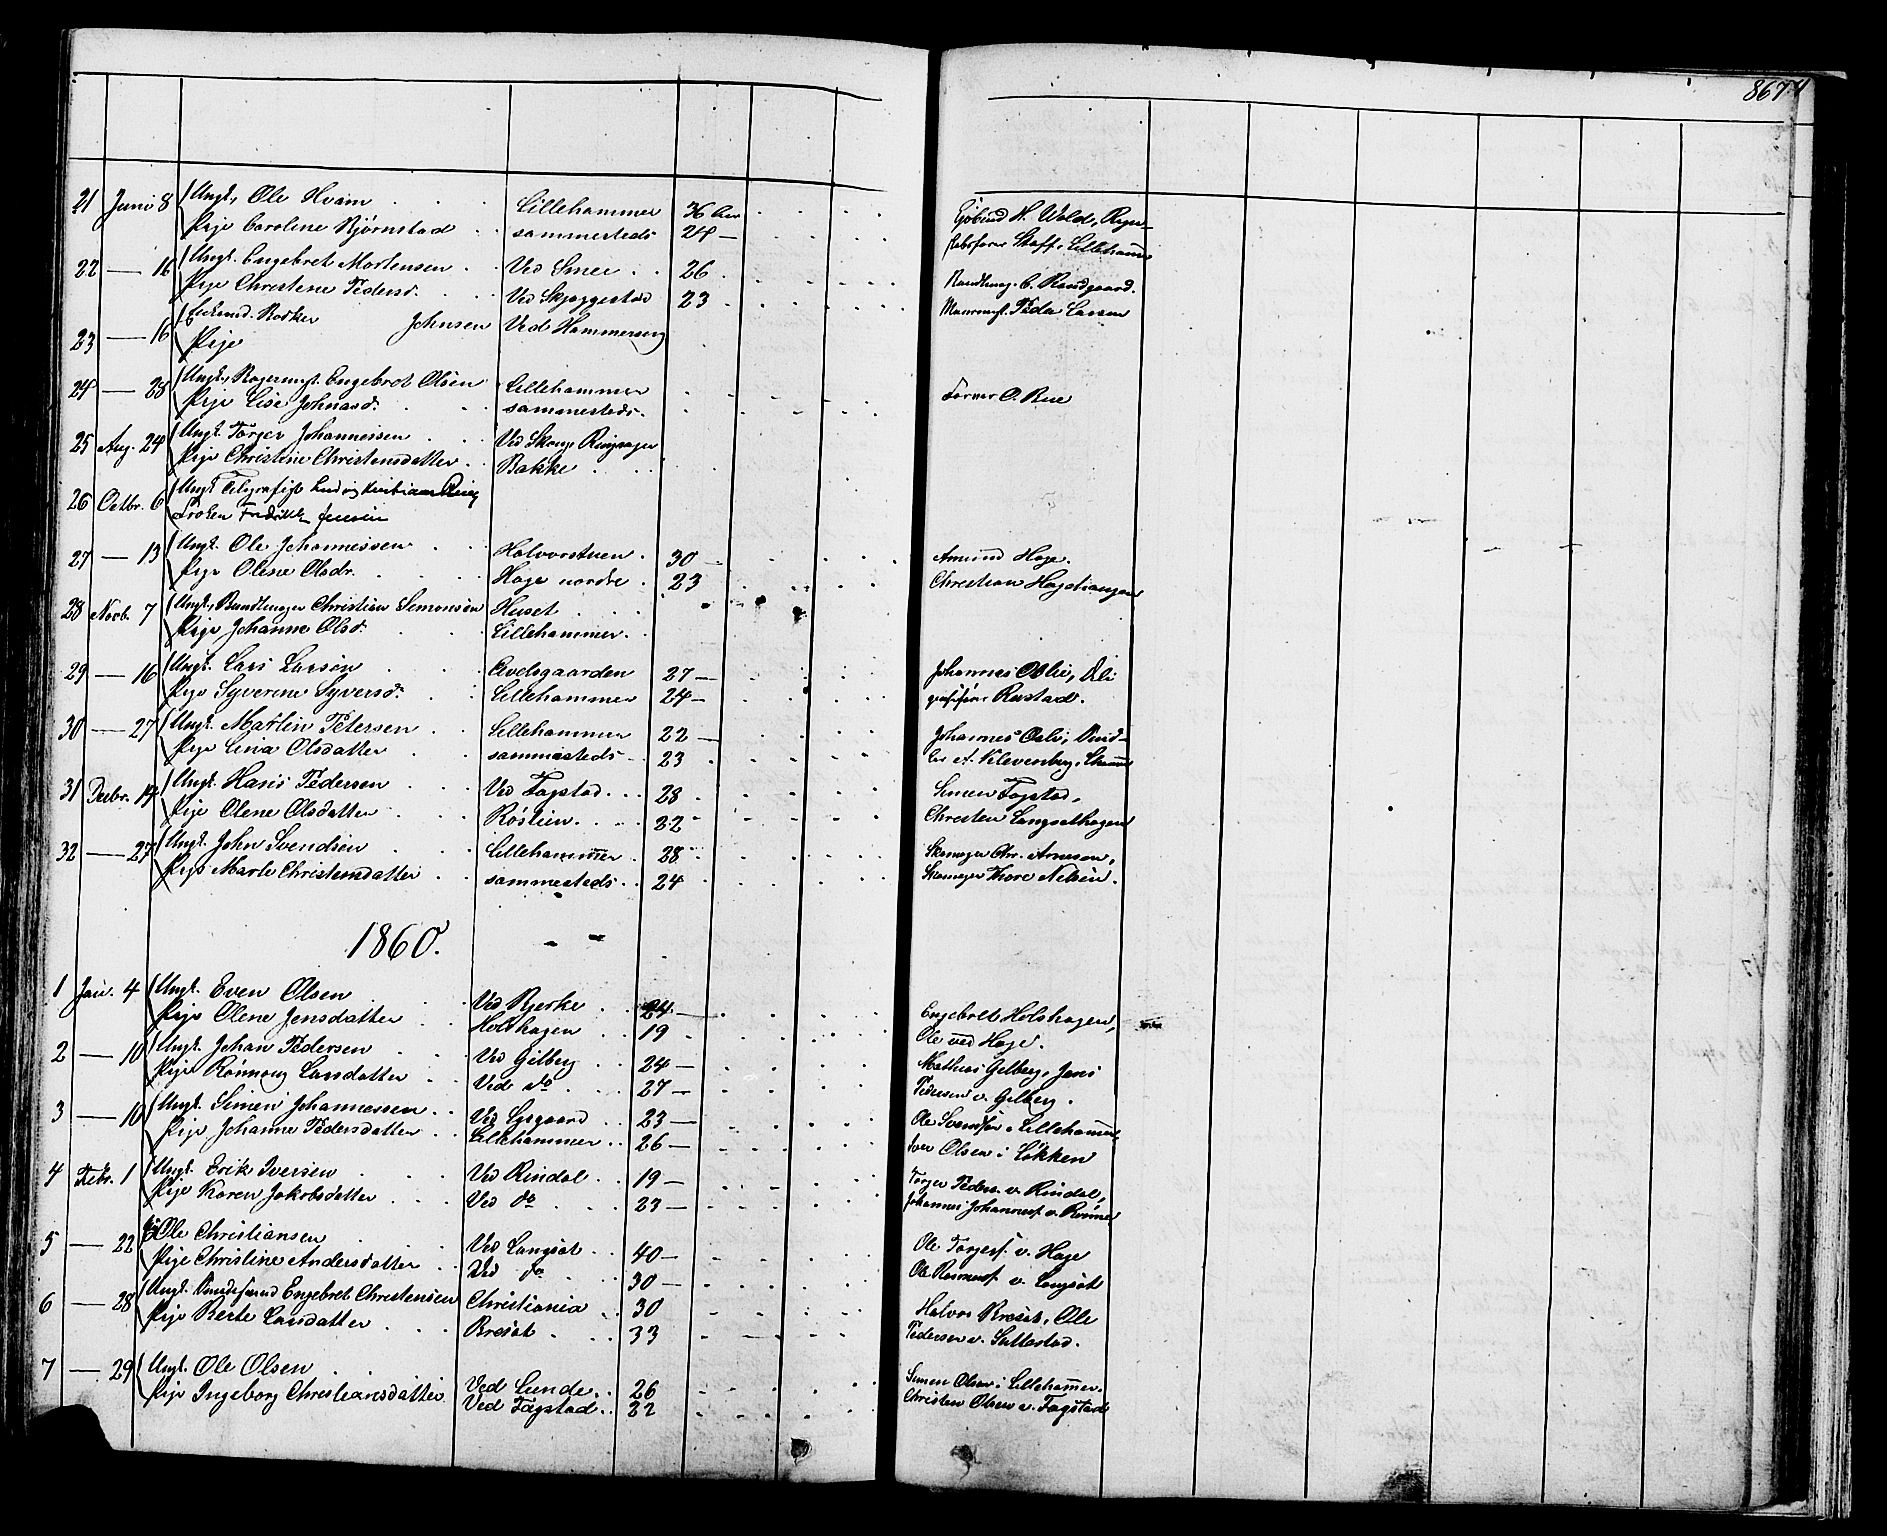 8674
21 Juni 8 Ungk. Ole Hvam Lillehammer 36 Aar
Pige Caroline Bjørnstad sammesteds 24 —
H. Wold,
Lillehammer
22 — 16 Ungk. Engebret Mortensen Ved Smee 26
Pige Christene Pedersd. Ved Skjæggestad 23
C. Randgaard.
Peder Larsen
23 — 16 Johnsen Ved Hammerseng
Pige
24 — 28 Ungk. Engebret Olsen Lillehammer
Pige Lise Johnsd. sammesteds.
Farver O. Rue
25 Aug. 24 Ungk. Torger Johannessen Ved Skonge Ringsager
Pige Christine Christensdatter Bakke
26 Octbr. 6 Ungk Telegrafist
Frøken Fredrikke Jensen
27 — 13 Ungk. Ole Johannessen Halvorstuen 30 — Amund Hage.
Pige Olene Olsdr. Hage nordre 23 Christian
28 Novb. 7 Ungk. Christian Simonsen Huset
Pige Johanne Olsd. Lillehammer.
29 — 16 Ungk. Lars Larsen Avelsgaarden 27 — Johannes
Pige Syverine Syversd. Lillehammer 24 — Rustad.
30 — 27 Ungk. Martin Petersen Lillehammer 22 — Johannes
Pige Lina Olsdatter sammesteds 23
31 Decbr. 14 Ungk. Hans Pedersen Ved Fagstad 28 Simen Fagstad,
Pige Olene Olsdatter Røstien 22 Christen
32 — 27 Ungk. John Svendsen Lillehammer 28 Skomager Chr. Arnesen,
Pige Marte Christensdatter sammesteds 24 Skomager Thore Nelsen.
1860.
1 Jan. 4 Ungk. Even Olsen Ved Bjerke 24 — Engebret Holshagen,
Pige Olene Jensdatter Holshagen 19 Ole ved Hage.
2 — 10 Ungk. Johan Pedersen Ved Gilberg 24 — Mathias Gilberg, Jens
Pige Rønnoug Larsdatter Ved do 27 — Pedersen v. Gilberg.
3 — 10 Ungk. Simen Johannessen Ved Lysgaard 23 — Ole i Lillehammer,
Pige Johanne Pedersdatter Lillehammer 26 — Iver Olsen i Løkken
4 Febr. 1 Ungk. Erik Iversen Ved Rindal 19 — Torger Peders. v. Rindal,
Pige Karen Jakobsdatter Ved do 23 — Johannes Johannesf. v.
5 — 22 Ole Christiansen Ved Langsæt 40 — Ole Torgersf. v. Hage
Pige Christine Andersdatter Ved do 30 — Ole v. Langsæt
6 — 28 Ungk. Engebret Christensen Christiania 30 Halvor Bresæt, Ole
Pige Berte Larsdatter Bresæt 33 Pedersen v. Suttestad.
7 — 29 Ungk. Ole Olsen Ved Lunde 26 Simen Olsen i Lillehammer.
Pige Ingeborg Christiansdatter Ved Fagstad 22 Christen Olsen v. Fagstad